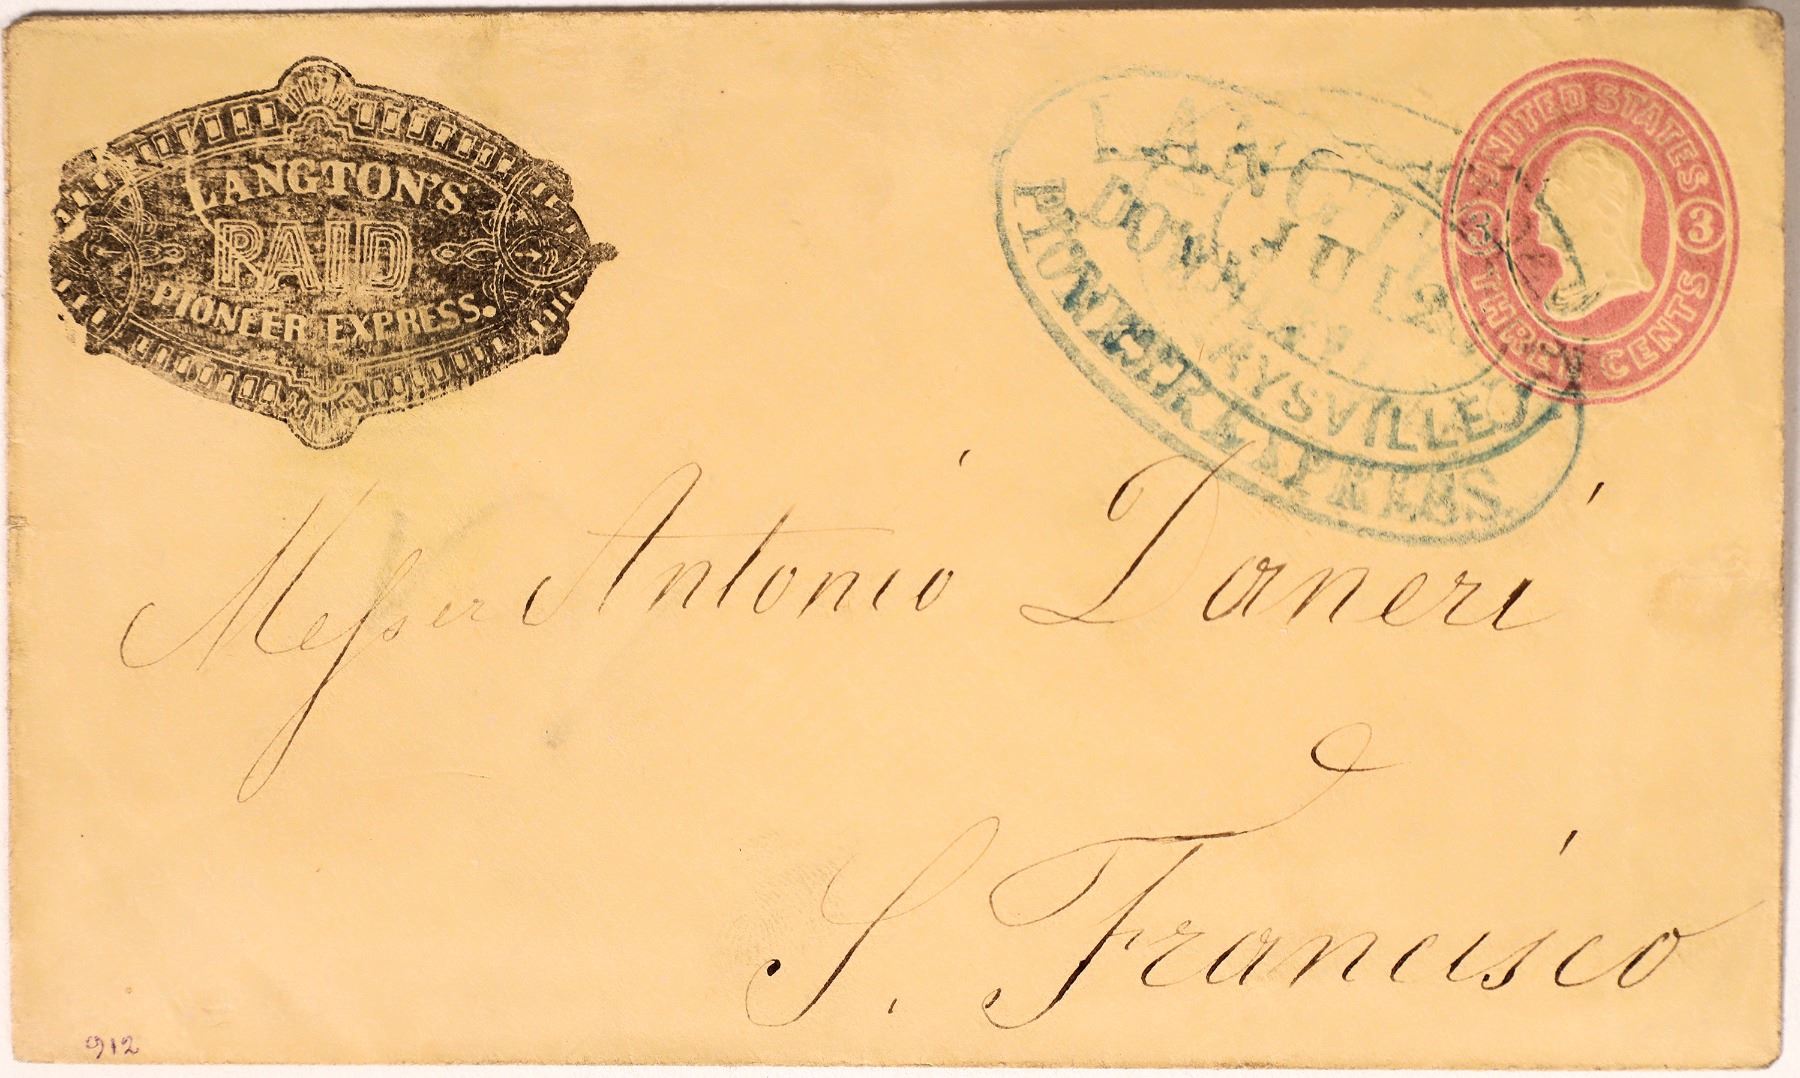 LANGTON'S
PAID
PIONEER EXPRESS.
LANGTON'S
PIONEER EXPRESS.
DOWNIEVILLE
JUL 2
MARYSVILLE
UNITED STATES
3 3
THREE CENTS
Messer Antonio Daneri
S. Francisco
912